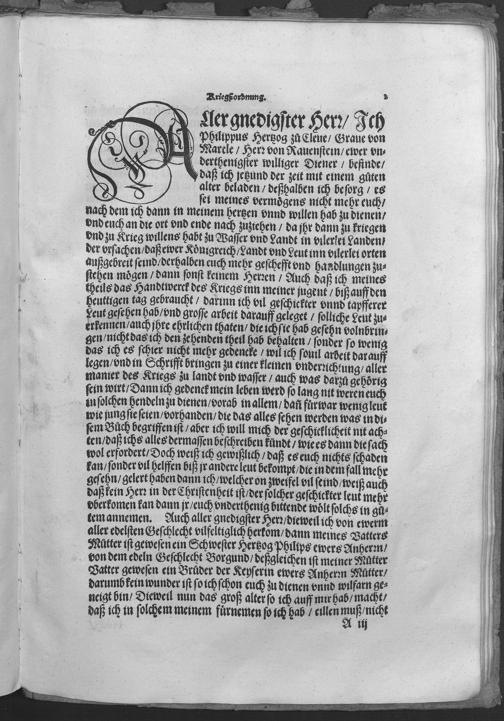 Kriegßordnung. 2
ALler gnedigster Herr/ Ich
Philippus Hertzog zů Cleue/ Graue von
Marcle/ Herr von Rauenstein/ ewer vn-
derthenigster williger Diener/ befinde/
daß ich jetzund der zeit mit einem gůten
alter beladen/ deßhalben ich besorg/ es
sei meines vermögens nicht mehr euch/
nach dem ich dann in meinem hertzen vnnd willen hab zů dienen/
vnd euch an die ort vnd ende nach zuziehen/ da jhr dann zu kriegen
vnd zu Krieg willens habt zů Wasser vnd Landt in vilerlei Landen/
der vrsachen/ daß ewer Königreich/ Landt vnd Leut inn vilerlei orten
außgebreit seind/ derhalben euch mehr geschefft vnd handlungen zů-
stehen mögen/ dann sonst keinem Herren/ Auch daß ich meines
theils das Handtwerck des Kriegs inn meiner jugent/ biß auff den
heuttigen tag gebraucht/ darinn ich vil geschickter vnnd tapfferer
Leut gesehen hab/ vnd grosse arbeit darauff geleget/ solliche Leut zů-
erkennen/ auch ihre ehrlichen thaten/ die ich sie hab gesehn volnbrin-
gen/ nicht das ich den zehenden theil hab behalten/ sonder so wenig
das ich es schier nicht mehr gedencke/ wil ich souil arbeit darauff
legen/ vnd in Schrifft bringen zu einer kleinen vnderrichtung/ aller
manier des Kriegs zu landt vnd wasser/ auch was darzů gehörig
sein wirt/ Dann ich gedenck mein leben werd so lang nit weren euch
zu solchen hendeln zu dienen/ vorab in allem/ dañ fürwar wenig leut
wie jung sie seien/ vorhanden/ die das alles sehen werden was in di-
sem Bůch begriffen ist/ aber ich will mich der geschicklicheit nit ach-
ten/ daß ichs alles dermassen beschreiben kündt/ wie es dann die sach
wol erfordert/ Doch weiß ich gewißlich/ daß es euch nichts schaden
kan/ sonder vil helffen biß jr andere leut bekompt/ die in dem fall mehr
gesehn/ gelert haben dann ich/ welcher on zweifel vil seind/ weiß auch
daß kein Herr in der Christenheit ist/ der solcher geschickter leut mehr
vberkomen kan dann jr/ euch vnderthenig bittende wölt solchs in gů-
tem annemen. Auch aller gnedigster Herr/ dieweil ich von ewerm
aller edelsten Geschlecht vilfeltiglich herkom/ dann meines Vatters
Můtter ist gewesen ein Schwester Hertzog Philips ewers Anherrn/
von dem edeln Geschlecht Borgund/ deßgleichen ist meiner Můtter
Vatter gewesen ein Brůder der Keyserin ewers Anherrn Můtter/
darumb kein wunder ist so ich schon euch zů dienen vnnd wilfarn ge-
neigt bin/ Dieweil nun das groß alter so ich auff mir hab/ macht/
daß ich in solchem meinem fürnemen so ich hab/ eillen muß/ nicht
A iij